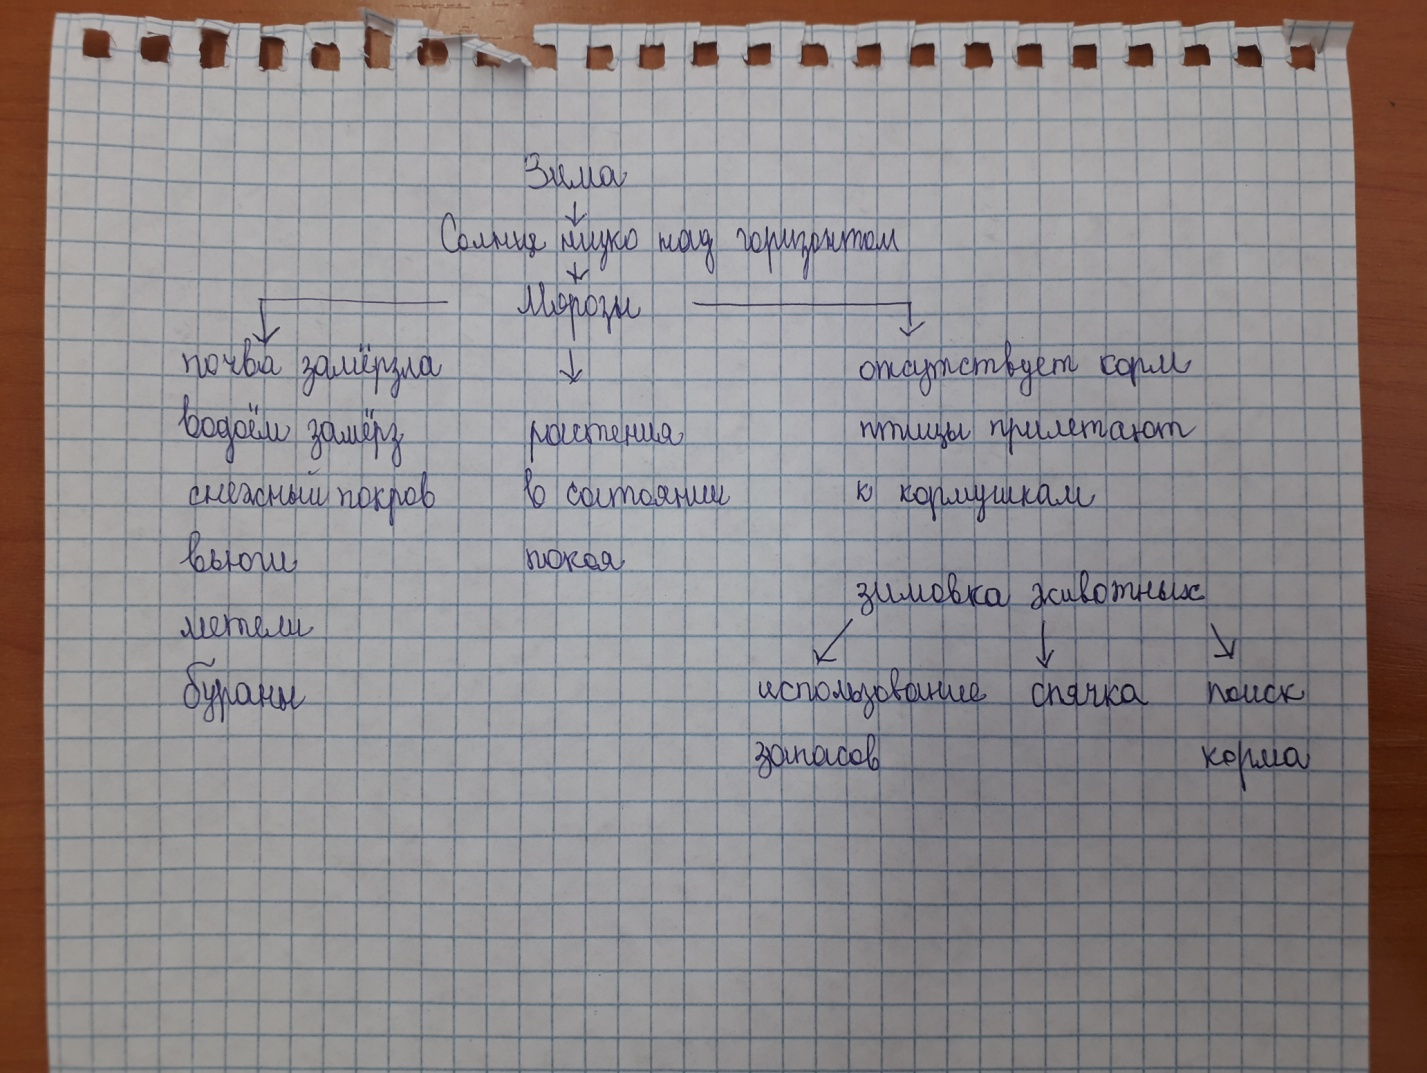 Зима
Солнце низко над горизонтом
Морозы
почва замёрзла
водоём замёрз
снежный покров
вьюги
метели
бураны
растения
в состоянии
покоя
отсутствует корм
птицы прилетают
к кормушкам
зимовка животных
использование
запасов
спячка
поиск
корма